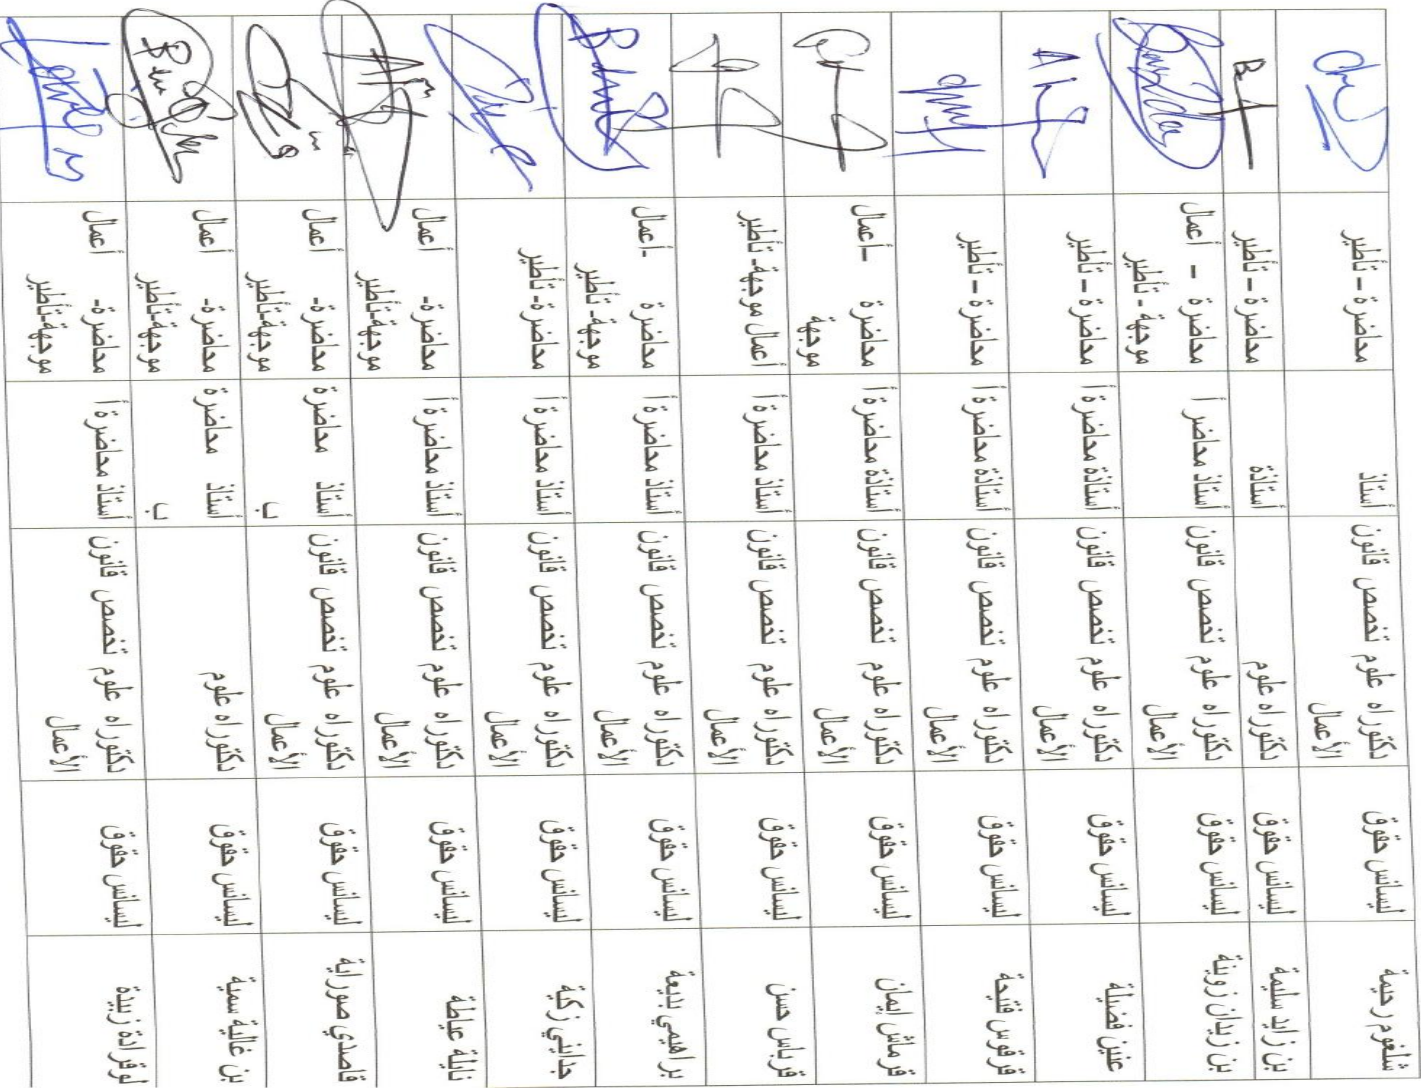 شلغوم رحيمة
ليسانس حقوق
دكتوراه علوم تخصص قانون
الأعمال
أستاذ
محاضرة – تأطير
بن زايد سليمة
ليسانس حقوق
دكتوراه علوم
أستاذة
محاضرة – تأطير
بن زيدان زوينة
ليسانس حقوق
دكتوراه علوم تخصص قانون
الأعمال
أستاذ محاضر أ
محاضرة – أعمال
موجهة - تأطير
عنين فضيلة
ليسانس حقوق
دكتوراه علوم تخصص قانون
الأعمال
أستاذة محاضرة أ
محاضرة – تأطير
قرقوس فتيحة
ليسانس حقوق
دكتوراه علوم تخصص قانون
الأعمال
أستاذة محاضرة أ
محاضرة – تأطير
قرماش إيمان
ليسانس حقوق
دكتوراه علوم تخصص قانون
الأعمال
أستاذة محاضرة أ
محاضرة –أعمال
موجهة
قرباس حسن
ليسانس حقوق
دكتوراه علوم تخصص قانون
الأعمال
أستاذ محاضرة أ
أعمال موجهة- تأطير
براهيمي بديعة
ليسانس حقوق
دكتوراه علوم تخصص قانون
الأعمال
أستاذ محاضرة أ
محاضرة -أعمال
موجهة- تأطير
جدايني زكية
ليسانس حقوق
دكتوراه علوم تخصص قانون
الأعمال
أستاذ محاضرة أ
محاضرة- تأطير
نايلة عياطة
ليسانس حقوق
دكتوراه علوم تخصص قانون
الأعمال
أستاذ محاضرة أ
محاضرة- أعمال
موجهة-تأطير
قاصدي صوراية
ليسانس حقوق
دكتوراه علوم تخصص قانون
الأعمال
أستاذ محاضرة
ب
محاضرة- أعمال
موجهة-تأطير
بن غالية سمية
ليسانس حقوق
دكتوراه علوم
أستاذ محاضرة
ب
محاضرة- أعمال
موجهة-تأطير
لوقرادة زبيدة
ليسانس حقوق
دكتوراه علوم تخصص قانون
الأعمال
أستاذ محاضرة أ
محاضرة- أعمال
موجهة-تأطير